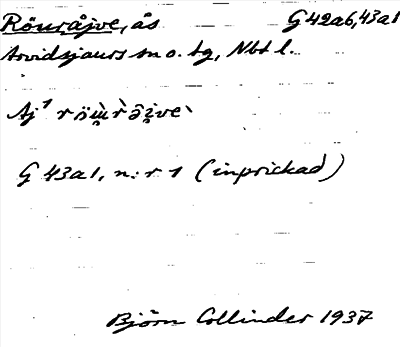 Röuråjve, ås G 42a6, 43a1
Arvidsjaurs sn o. tg, Nbt l.
Aj¹
G 43a1, n:r 1 (inprickad)
Björn Collinder 1937